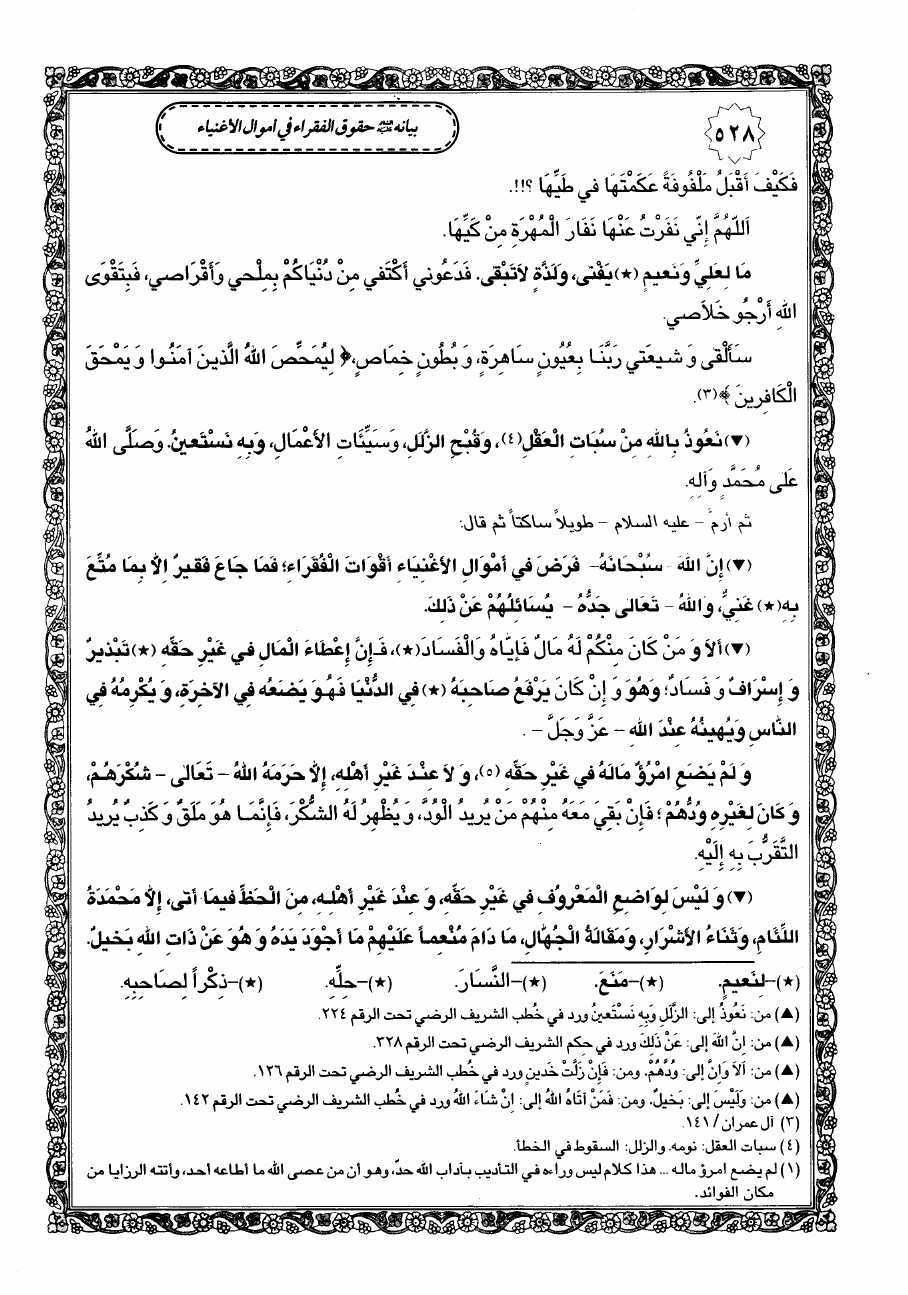 ٥٢٨
بيانه عليه السلام حقوق الفقراء في أموال الأغنياء
فَكَيْفَ أَقْبَلُ مَلْفُوفَةً عَكَمْتَهَا في طَيِّهَا ؟!!.
اَللّهُمَّ إِنّي نَفَرْتُ عَنْهَا نَفَارَ الْمُهْرَةِ مِنْ كَيِّهَا.
مَا لِعَلِيٍّ وَنَعيمٍ (★) يَفْنى، وَلَذَّةٍ لاَتَبْقى. فَدَعُوني أَكْتَفي مِنْ دُنْيَاكُمْ بِمِلْحي وَأَقْرَاصي، فَبِتَقْوَى
اللهِ أَرْجُو خَلاَصي.
سَأَلْقى وَ شيعَتي رَبَّنَا بِعُيُونٍ سَاهِرَةٍ، وَ بُطُونٍ خِمَاصٍ، ﴿ لِيُمَحِّصَ اللهُ الَّذينَ آمَنُوا وَ يَمْحَقَ
الْكَافِرينَ ﴾(٣).
(▼) نَعُوذُ بِاللهِ مِنْ سُبَاتِ الْعَقْلِ(٤)، وَ قُبْحِ الزَّلَلِ، وَسَيِّئَاتِ الأَعْمَالِ، وَبِهِ نَسْتَعينُ. وَصَلَّى اللهُ
عَلى مُحَمَّدٍ وَآلِهِ.
ثم أرم - عليه السلام - طويلاً ساكتاً ثم قال:
(▼) إِنَّ اللهَ - سُبْحَانَهُ - فَرَضَ في أَمْوَالِ الأَغْنِيَاءِ أَقْوَاتَ الْفُقَرَاءِ؛ فَمَا جَاعَ فَقيرٌ إِلاَّ بِمَا مُتِّعَ
بِهِ(★) غَنِيٌّ، وَاللهُ - تَعَالى جَدُّهُ - يُسَائِلُهُمْ عَنْ ذَلِكَ.
(▼) أَلاَ وَ مَنْ كَانَ مِنْكُمْ لَهُ مَالٌ فَإِيَّاهُ وَالْفَسَادَ(★)، فَإِنَّ إِعْطَاءَ الْمَالِ في غَيْرِ حَقِّهِ (★) تَبْذيرٌ
وَ إِسْرَافٌ وَ فَسَادٌ؛ وَهُوَ وَ إِنْ كَانَ يَرْفَعُ صَاحِبَهُ (★) فِي الدُّنْيَا فَهُوَ يَضَعُه فِي الآخِرَةِ، وَ يُكْرِمُهُ فِي
النَّاسِ وَيُهينُهُ عِنْدَ اللهِ - عَزَّ وَجَلَّ - .
وَ لَمْ يَضَعِ امْرُؤٌ مَالَهُ في غَيْرِ حَقِّهِ (٥)، وَ لاَ عِنْدَ غَيْرِ أَهْلِهِ، إِلاَّ حَرَمَهُ اللهُ - تَعَالى - شُكْرَهُمْ،
وَ كَانَ لِغَيْرِهِ وُدُّهُمْ ؛ فَإِنْ بَقِيَ مَعَهُ مِنْهُمْ مَنْ يُريدُ الْوُدَّ، وَ يُظْهِرُ لَهُ الشُّكْرَ، فَإِنَّمَا هُوَ مَلَقٌ وَ كَذِبٌ يُريدُ
التَّقَرُّبَ بِهِ إِلَيْهِ.
(▼) وَ لَيْسَ لِوَاضِعِ الْمَعْرُوفِ في غَيْرِ حَقِّهِ، وَ عِنْدَ غَيْرِ أَهْلِهِ، مِنَ الْحَظِّ فيمَا أَتى، إِلاَّ مَحْمَدَةُ
اللِّئَامِ، وَثَنَاءُ الأَشْرَارِ، وَمَقَالَةُ الْجُهَّالِ، مَا دَامَ مُنْعِماً عَلَيْهِمْ مَا أَجْوَدَ يَدَهُ وَ هُوَ عَنْ ذَاتِ اللهِ بَخيلٌ.
(★)-لِنَعيمٍ. (★)-مَنَعَ. (★)-النَّسَارَ. (★)-حِلِّهِ. (★)-ذِكْراً لِصَاحِبِهِ.
(▲) من: نَعُوذُ إلى: الزَّلَلِ وَبِهِ نَسْتَعينُ ورد في خُطب الشريف الرضي تحت الرقم ٢٢٤.
(▲) من: إِنَّ اللهَ إلى: عَنْ ذَلِكَ ورد في حكم الشريف الرضي تحت الرقم ٣٢٨.
(▲) من: أَلاَ وَإِنَّ إلى: وُدُّهُمْ. ومن: فَإِنْ زَلَّتْ خَدينٍ ورد في خُطب الشريف الرضي تحت الرقم ١٢٦.
(▲) من: وَلَيْسَ إلى: بَخيلٌ. ومن: فَمَنْ آتَاهُ اللهُ إلى: إِنْ شَاءَ اللهُ ورد في خُطب الشريف الرضي تحت الرقم ١٤٢.
(٣) آل عمران / ١٤١.
(٤) سبات العقل: نومه. والزلل: السقوط في الخطأ.
(١) لم يضع امرؤ ماله ... هذا كلام ليس وراءه في التأديب بآداب الله حدّ، وهو أن من عصى الله ما أطاعه أحد، وأتته الرزايا من
مكان الفوائد.